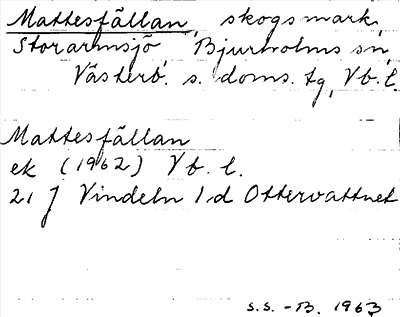 Mattesfällan, skogsmark,
Storarmsjö, Bjurholms sn,
Västerb. s. doms. tg, Vb. l.
Mattesfällan
ek (1962) Vb. l.
21 J Vindeln 1d Ottervattnet
S.S. -B. 1963